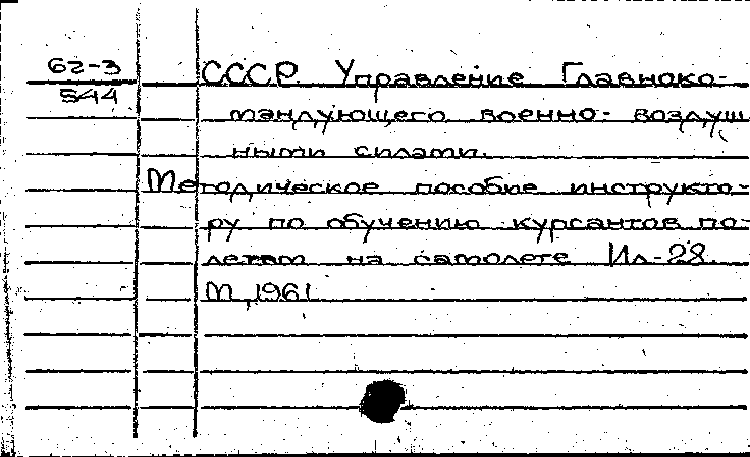 62-3
544
СССР. Управление Главноко-
мандующего военно-воздуш
ными силами.
Методическое пособие инструкто-
ру по обучению курсантов по-
летам на самолете Ил-28.
М, 1961